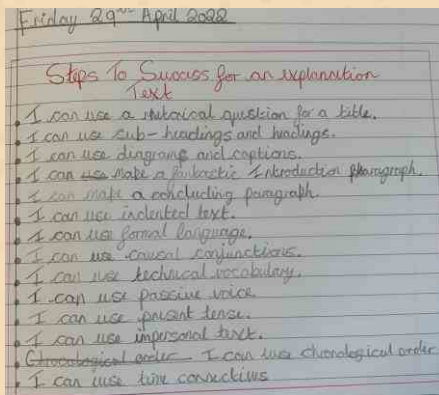 Friday 29th April 2022
Steps To Success for an explanation
Text
I can use a rhetorical question for a title.
I can use sub-headings and headings.
I can use diagrams and captions.
I can use make a fantastic Introduction pharagraph.
I can make a concluding paragraph.
I can use indented text.
I can use formal language.
I can use causal conjunctions.
I can use technical vocabulary.
I can use passive voice
I can use present tense.
I can use impersonal text.
Chrocological order I can use chronological order
I can use time connectives